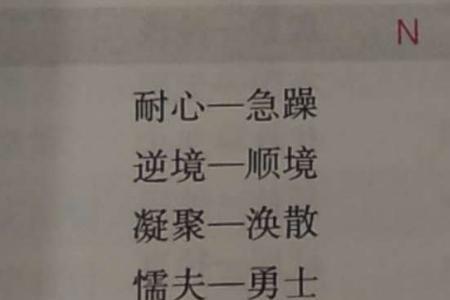 N
耐心—急躁
逆境—顺境
凝聚—涣散
懦夫—勇士